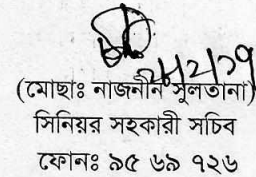 (মোছাঃ নাজনীন সুলতানা)
সিনিয়র সহকারী সচিব
ফোনঃ ৯৫ ৬৯ ৭২৬